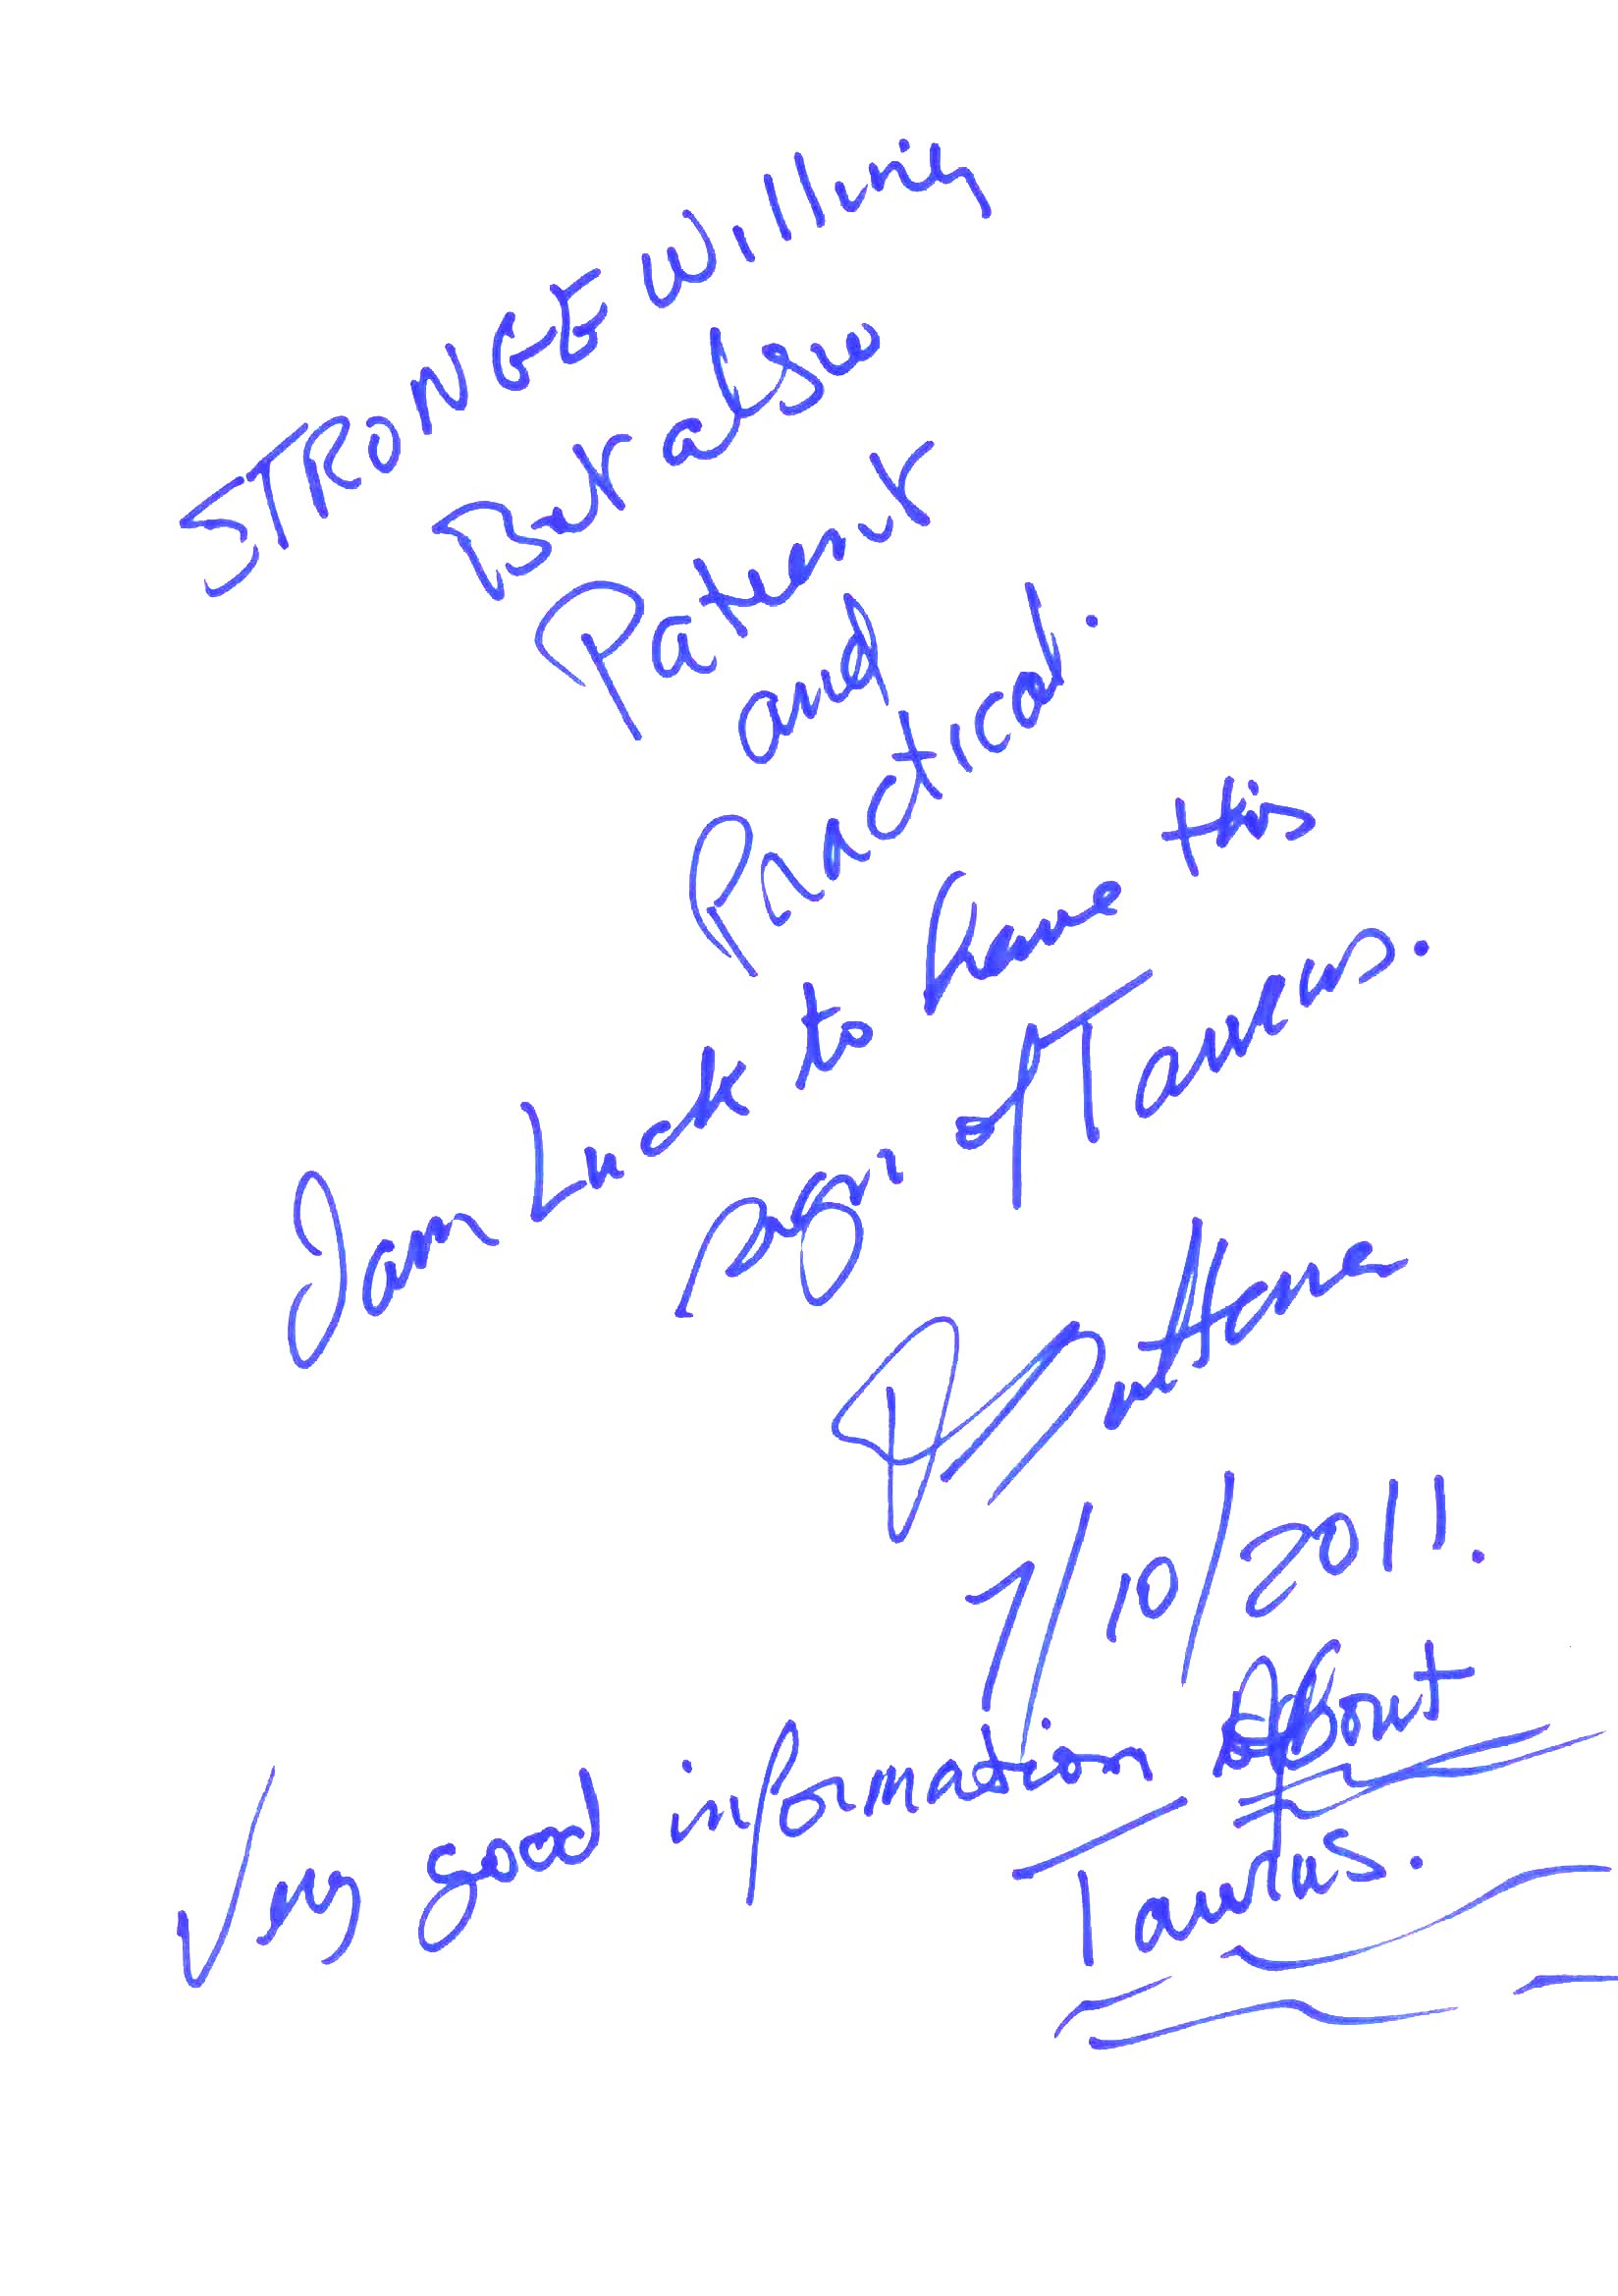 STRONGE Willing
But also
Patient
and
Practical.
I am Luck to have this
sign of Taurus.
7/10/2011.
Very good information About
Taurus.